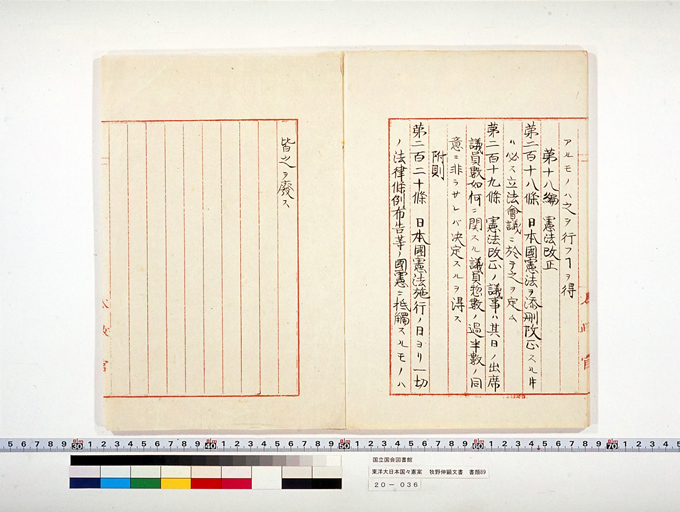 アルモノハ之ヲ行フヿヲ得
第十八編 憲法改正
第二百十八條 日本國憲法ヲ添刪改正スル時
ハ必ス立法會議ニ於テ之ヲ定ム
第二百十九條 憲法改正ノ議事ハ其日ノ出席
議員數如何ニ関スル議員惣數ノ過半數ノ同
意ニ非ラサレバ決定スルヲ得ス
附則
第二百二十條 日本國憲法施行ノ日ヨリ一切
ノ法律條例布告等ノ國憲ニ抵觸スルモノハ
皆之ヲ廢ス
国立国会図書館
東洋大日本国々憲案 牧野伸顕文書 書類89
20－036